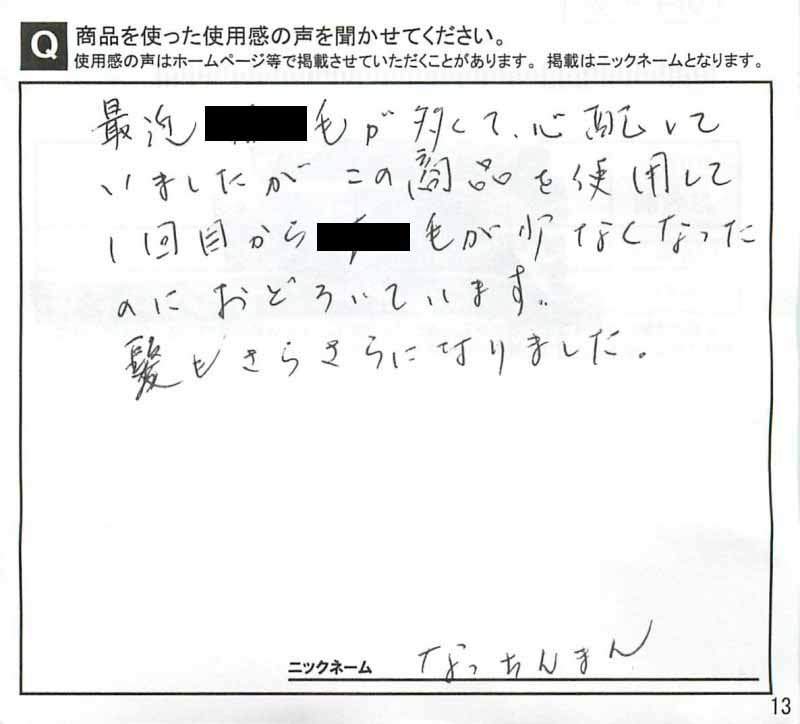 Q 商品を使った使用感の声を聞かせてください。
使用感の声はホームページ等で掲載させていただくことがあります。 掲載はニックネームとなります。
最近 毛が多くて、心配して
いましたが この商品を使用して
1回目から 毛が少なくなった
のに おどろいています。
髪もさらさらになりました。
ニックネーム なっちんまん
13